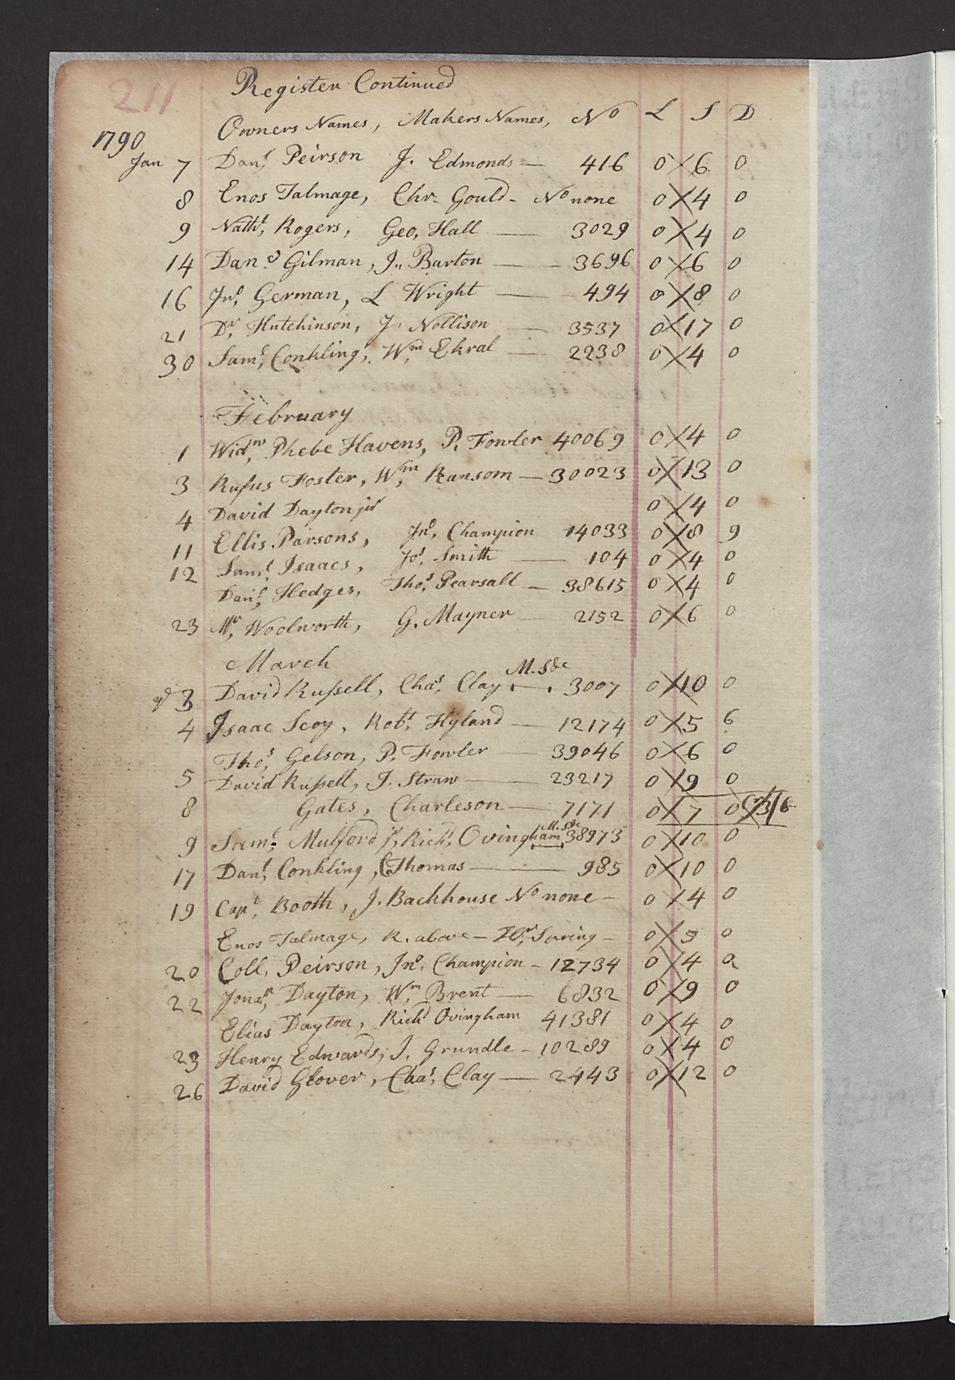 211 Register Continued
Owners Names, Makers Names, No L S D
1790
Jan 7 Danl. Peirson J. Edmonds — 416 0 6 0
8 Enos Talmage, Chr. Gould - No none 0 4 0
9 Nathl. Rogers, Geo, Hall — 3029 0 4 0
14 Danl. Gilman, J. Barton — 3696 0 6 0
16 Jno. German, L Wright — 494 0 8 0
21 Dr. Hutchinson, J. Nollison — 3537 0 17 0
30 Saml. Conkling, Wm. Ekral — 2238 0 4 0
February
1 Widw. Phebe Havens, P. Fowler 40069 0 4 0
3 Rufus Foster, Wm. Ransom — 30023 0 13 0
4 David Dayton jur 0 4 0
11 Ellis Parsons, Jno. Champion 14033 0 8 9
12 Saml. Isaacs, Jos. Smith — 104 0 4 0
Danl. Hedges, Thos. Pearsall — 38615 0 4 0
23 Mr. Woolworth, G. Mayner — 2152 0 6 0
March
3 David Russell, Chas. Clay M. Sde 3007 0 10 0
4 Isaac Scoy, Robt. Hyland — 12174 0 5 6
Thos. Gelson, P. Fowler — 39046 0 6 0
5 David Russell, J. Straw — 23217 0 9 0
8 Gates, Charleson — 7171 0 7 0 73/6
9 Saml. Mulford jr, Richd. Ovingham M. Sde 38973 0 10 0
17 Danl. Conkling, C Thomas — 985 0 10 0
19 Capt. Booth, J. Backhouse No none — 0 4 0
Enos Talmage, R. above — Spring — 0 5 0
20 Coll. Peirson, Jno. Champion - 12734 0 4 0
22 Jonan. Dayton, Wm. Brent — 6832 0 9 0
Elias Dayton, Richd Ovingham 41381 0 4 0
23 Henry Edwards, J. Grundle - 10289 0 4 0
26 David Glover, Chas. Clay — 2443 0 12 0